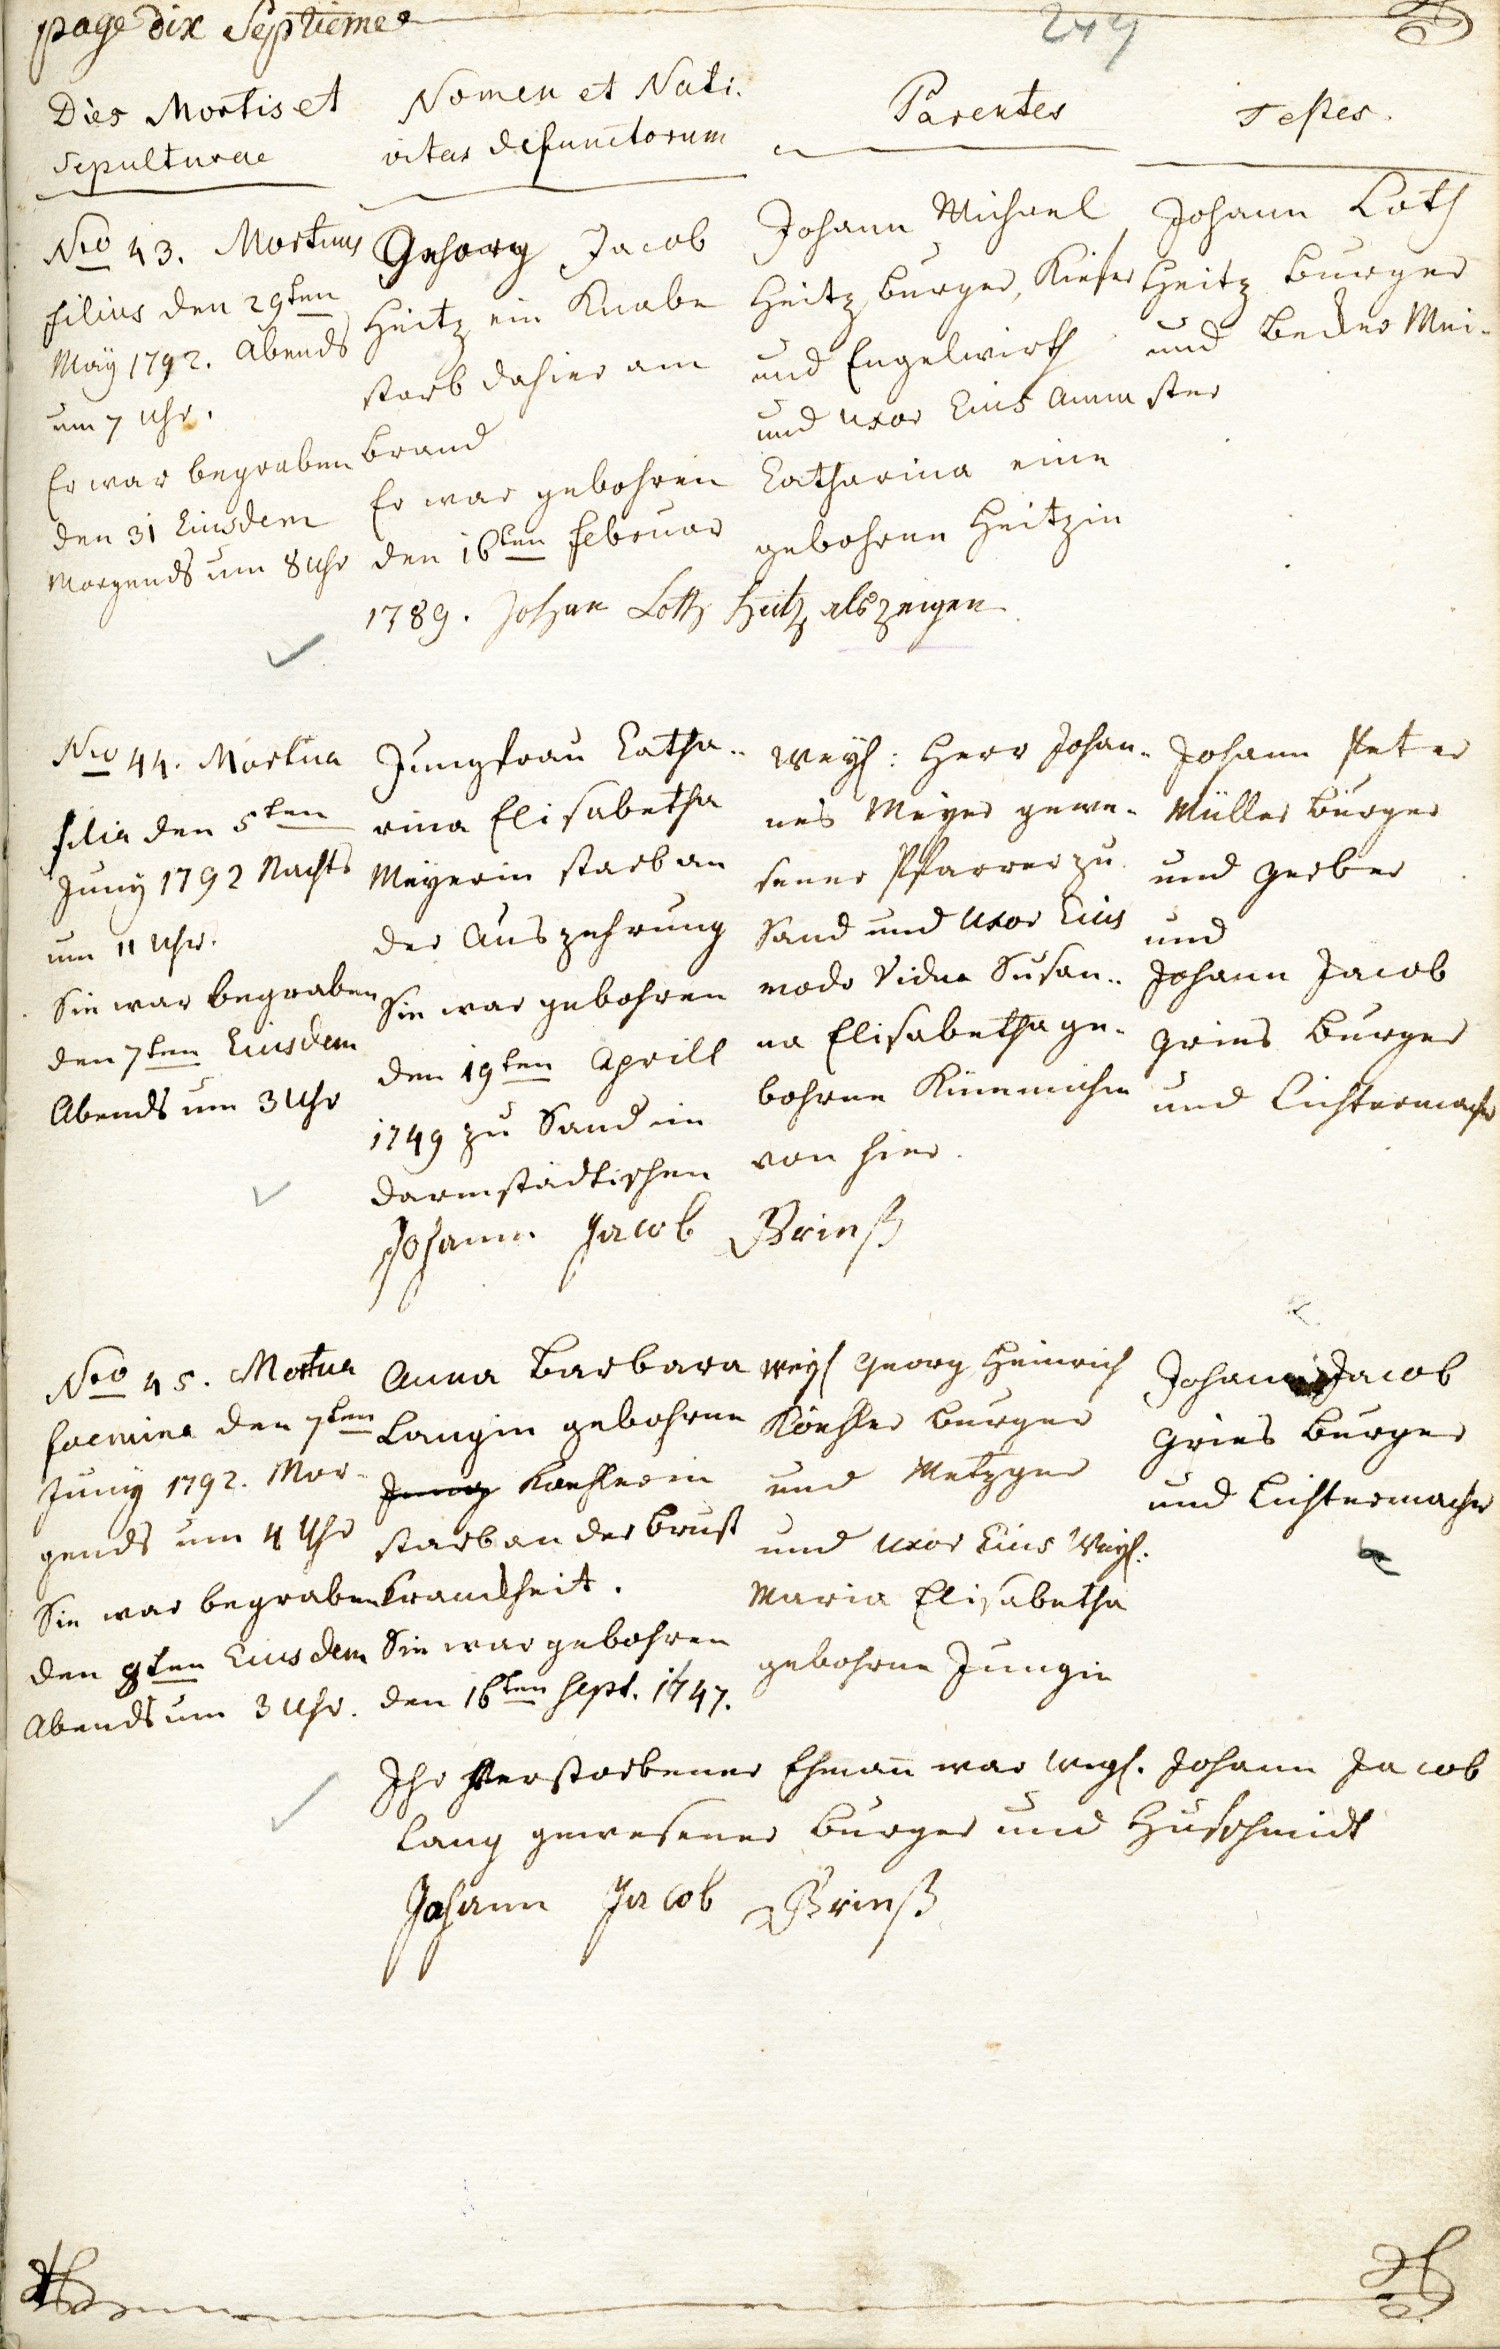 page dix Septieme
249
Dies Mortis et
Sepulturae
Nomen et Nati-
vitas defunctorum
Parentes
Testes.
Nro 43. Mortuus
filius den 29ten
Maÿ 1792. Abends
um 7 Uhr.
Er war begraben
den 31 Eiusdem
Morgends um 8 Uhr
Gehorg Jacob
Heitz ein Knabe
starb dahier am
Brand
Er war gebohren
den 16ten Februar
1789. Johan Loth Heitz als zeigen
Johann Michael
Heitz burger, Kiefer
und Engelwirth
und uxor Eius Anna
Catharina eine
gebohrne Heitzin
Johann Loth
Heitz burger
und Becker Mei-
ster
Nro 44. Mortua
filia den 5ten
Juny 1792 Nachts
um 11 Uhr.
Sie war begraben
den 7ten Eiusdem
Abends um 3 Uhr
Jungfrau Catha-
rina Elisabetha
Meyerin starb an
der Auszehrung
Sie war gebohren
den 19ten Aprill
1749 zu Sand im
darmstädtischen
Johann Jacob Grieß
Weyl: Herr Johan-
nes Meyer gewe-
sener Pfarrer zu
Sand und Uxor Eius
modo Vidua Susan-
na Elisabetha ge-
bohrne
von hier.
Johann Peter
Müller Burger
und Gerber
und
Johann Jacob
Gries Burger
und Lichtermacher
Nro 45. Mortua
foemina den 7ten
Juny 1792. Mor-
gends um 4 Uhr
Sie war begraben
den 8ten Eiusdem
Abends um 3 Uhr.
Anna Barbara
Langin gebohrne
Jung Koehlerin
starb an der Brust
Kranckheit.
Sie war gebohren
den 16ten Sept. 1747.
Weyl Georg Heinrich
Köehler burger
und Metzger
und uxor Eius Weyl:
Maria Elisabetha
gebohrne Jungin
Johann Jacob
Gries Burger
und Lichtermacher
Ihr Verstorbener Ehmañ war Weyl. Johann Jacob
Lang gewesener Burger und Hufschmidt
Johann Jacob Grieß